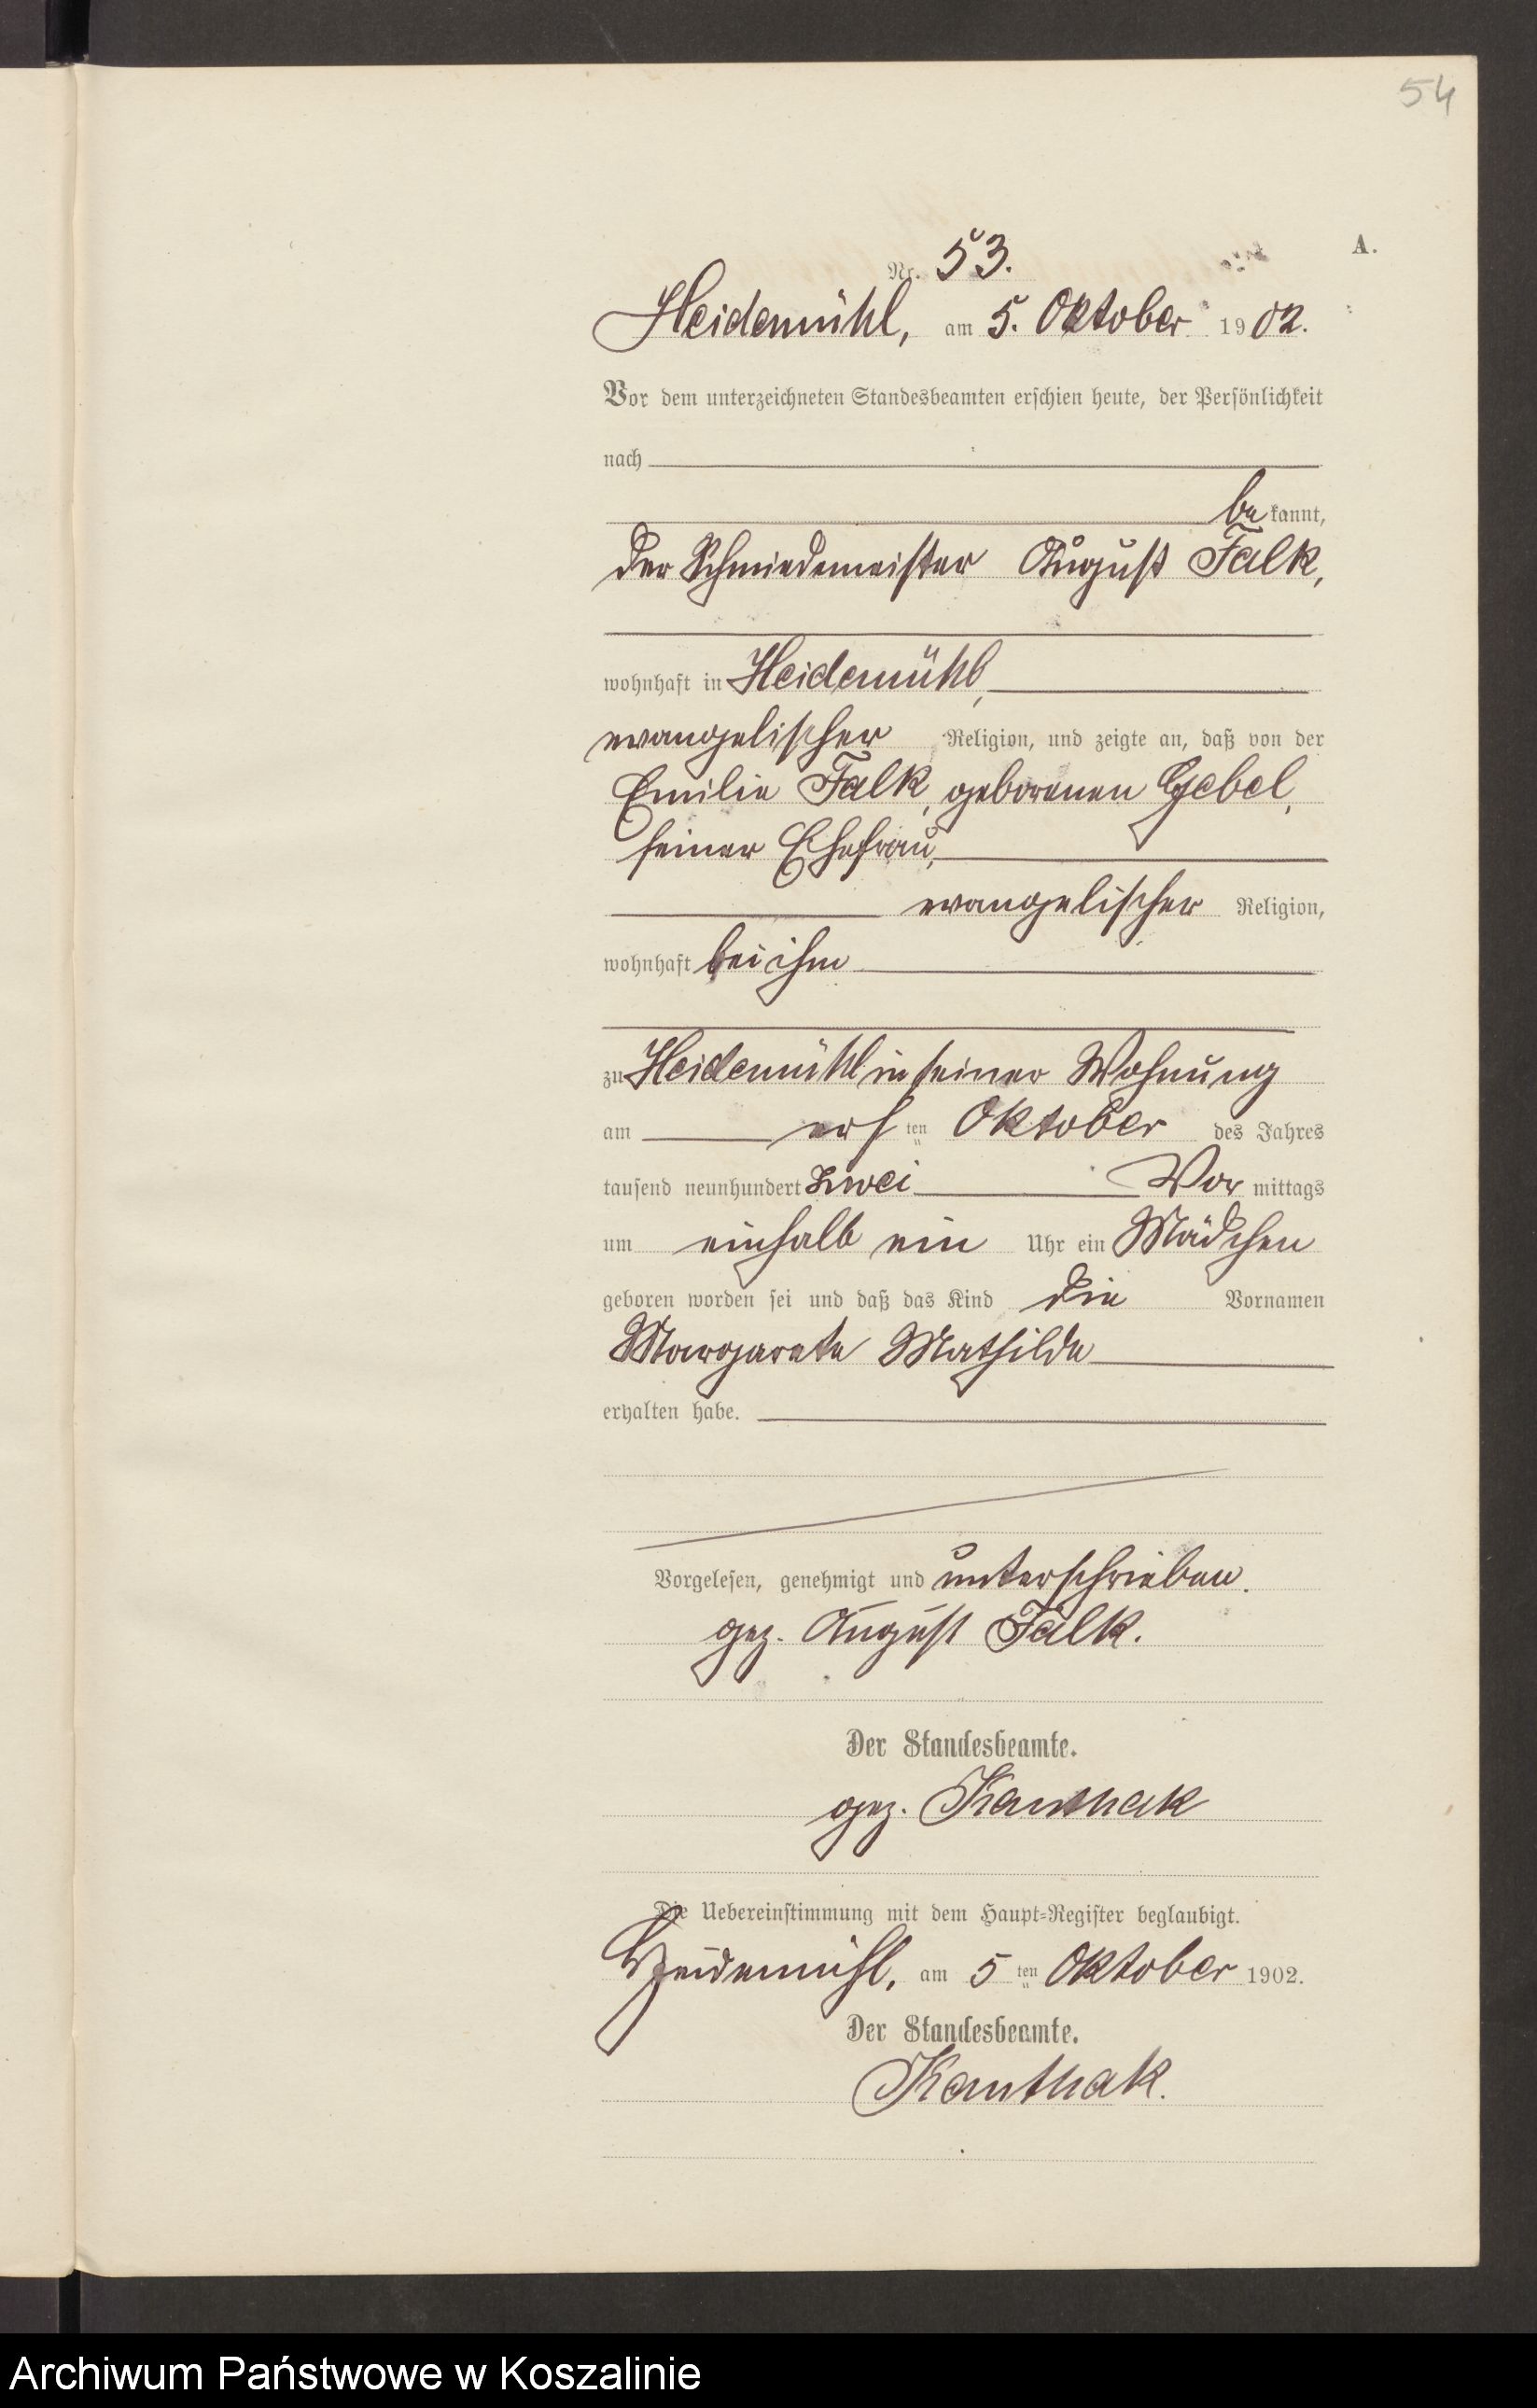 54
A.
Nr. 53.
Heidemühl, am 5. Oktober 1902.
Vor dem unterzeichneten Standesbeamten erschien heute, der Persönlichkeit
nach
bekannt,
der Schmiedemeister August Falk,
wohnhaft in Heidemühl,
evangelischer Religion, und zeigte an, daß von der
Emilie Falk, geborenen Gebel,
seiner Ehefrau,
evangelischer Religion,
wohnhaft bei ihm
zu Heidemühl in seiner Wohnung
am ersten Oktober des Jahres
tausend neunhundert zwei Vormittags
um einhalb ein Uhr ein Mädchen
geboren worden sei und daß das Kind die Vornamen
Margarete Mathilde
erhalten habe.
Vorgelesen, genehmigt und unterschrieben.
gez. August Falk.
Der Standesbeamte.
gez. Kanthak
Die Uebereinstimmung mit dem Haupt-Register beglaubigt.
Heidemühl, am 5ten Oktober 1902.
Der Standesbeamte.
Kanthak.
Archiwum Państwowe w Koszalinie